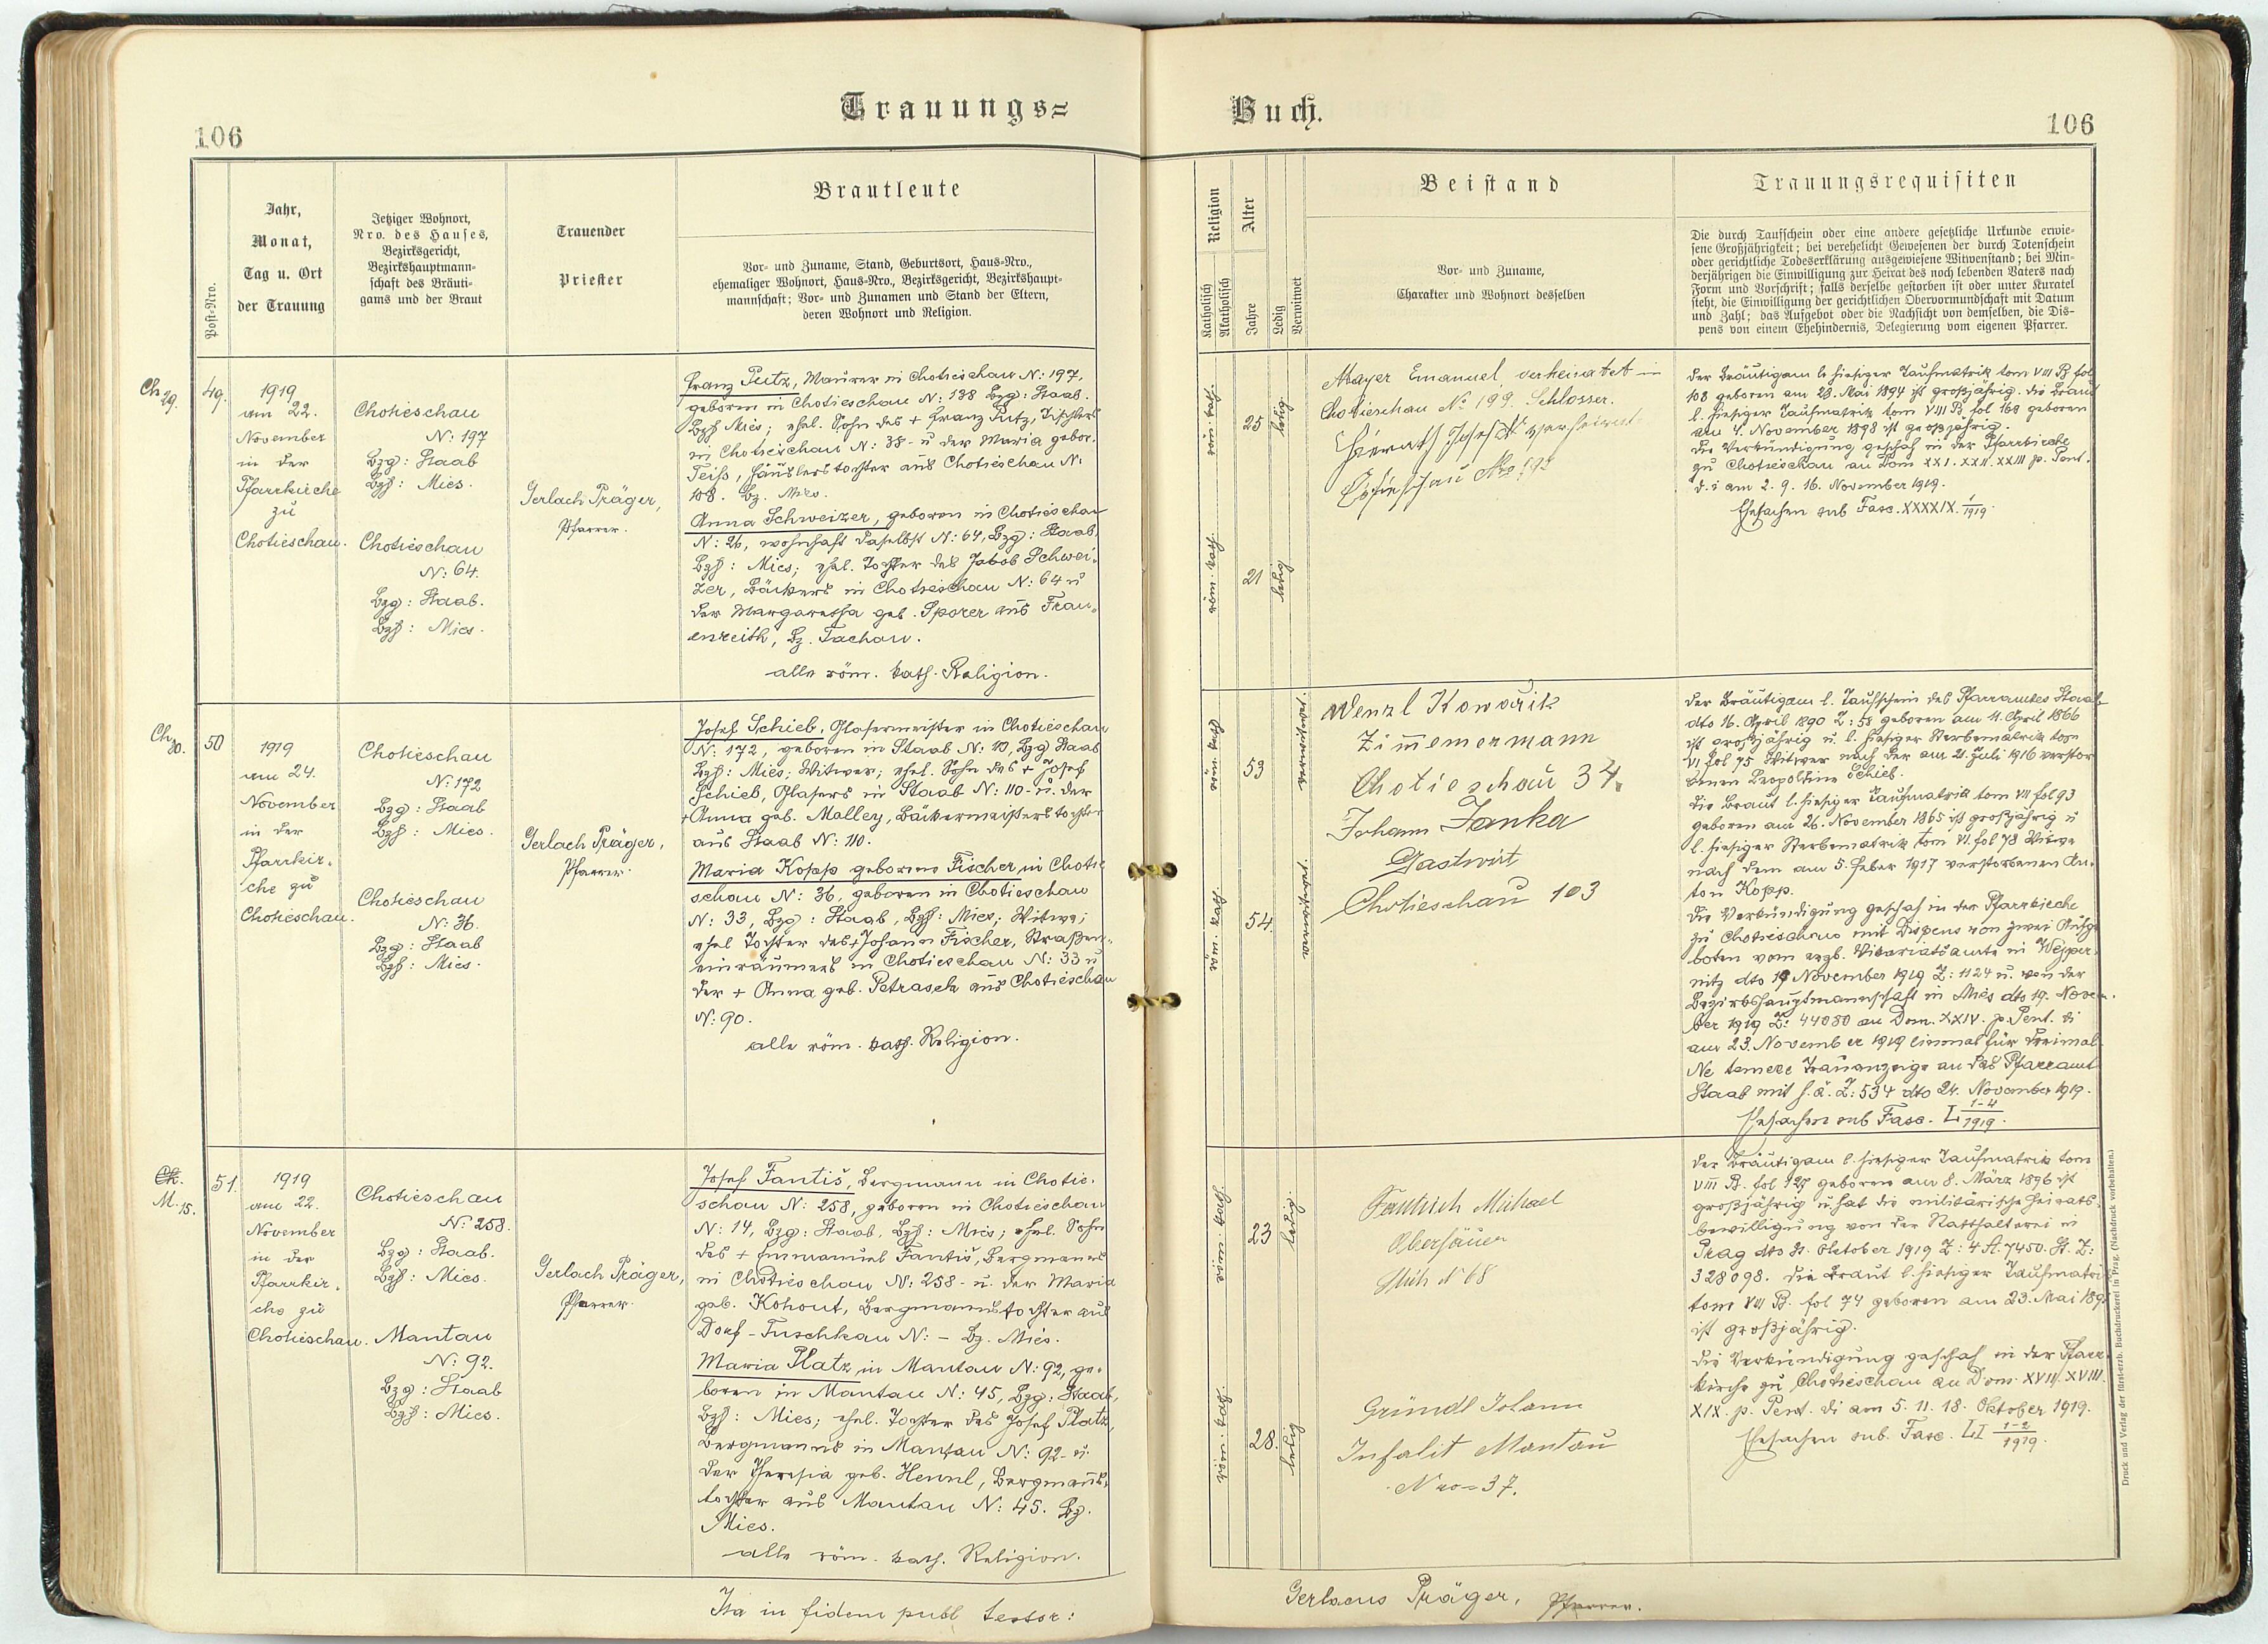 Trauungs=
Buch.
106
106
Post=Nro.
Jahr,
Monat,
Tag u. Ort
der Trauung
Jetziger Wohnort,
Nro. des Hauses,
Bezirksgericht,
Bezirkshauptmann-
schaft des Bräuti-
gams und der Braut
Trauender
Priester
Brautleute
Vor- und Zuname, Stand, Geburtsort, Haus-Nro.,
ehemaliger Wohnort, Haus-Nro., Bezirksgericht, Bezirkshaupt-
mannschaft; Vor- und Zunamen und Stand der Eltern,
deren Wohnort und Religion.
Religion
Katholisch
Akatholisch
Alter
Jahre
Ledig
Verwitwet
Beistand
Vor- und Zuname,
Charakter und Wohnort desselben
Trauungsrequisiten
Die durch Taufschein oder eine andere gesetzliche Urkunde erwie-
sene Großjährigkeit; bei verehelicht Gewesenen der durch Totenschein
oder gerichtliche Todeserklärung ausgewiesene Witwenstand; bei Min-
derjährigen die Einwilligung zur Heirat des noch lebenden Vaters nach
Form und Vorschrift; falls derselbe gestorben ist oder unter Kuratel
steht, die Einwilligung der gerichtlichen Obervormundschaft mit Datum
und Zahl; das Aufgebot oder die Nachsicht von demselben, die Dis-
pens von einem Ehehindernis, Delegierung vom eigenen Pfarrer.
Ch 29.
49.
1919
am 22.
November
in der
Pfarrkirche
zu
Chotieschau.
Chotieschau
N: 197
Bzg: Staab
Bzh: Mies.
Chotieschau
N: 64.
Bzg: Staab.
Bzh: Mies.
Gerlach Präger,
Pfarrer.
Franz Putz, Maurer in Chotieschau N: 197,
geboren in Chotieschau N: 138 Bzg: Staab.
Bzh Mies; ehel. Sohn des + Franz Putz, Tischlers
in Chotieschau N: 38 - u der Maria gebor.
Teiß, Häuslerstochter aus Chotieschau N:
108. Bz. Mies.
Anna Schweizer, geboren in Chotieschau
N: 26, wohnhaft daselbst N: 64, Bzg: Staab,
Bzh: Mies; ehel. Tochter des Jakob Schwei-
zer, Bäckers in Chotieschau N: 64 u
der Margaretha geb. Sporer aus Frau-
enreith, Bz. Tachau.
alle röm. kath. Religion.
röm. kath.
25
ledig.
röm. kath.
21
ledig
Mayer Emanuel, verheiratet in
Chotieschau No 199. Schlosser.
Josef verheirat.
No 192
Der Bräutigam l. hiesiger Taufmatrik tom VIII B fol
108 geboren am 23. Mai 1894 ist großjährig. Die Braut
l. hiesiger Taufmatrik tom VIII B. fol 168 geboren
am 4. November 1898 ist großjährig.
Die Verkündigung geschah in der Pfarrkirche
zu Chotieschau an Dom XXI. XXII. XXIII p. Pent.
d. i am 2. 9. 16. November 1919.
Ehesachen sub Fasc. XXXXIX. 1/1919.
Ch 30.
50
1919
am 24.
November
in der
Pfarrkir-
che zu
Chotieschau.
Chotieschau
N: 172
Bzg: Staab
Bzh: Mies.
Chotieschau
N: 36.
Bzg: Staab
Bzh: Mies.
Gerlach Präger,
Pfarrer.
Josef Schieb, Glasermeister in Chotieschau
N: 172, geboren in Staab N: 10, Bzg Staab
Bzh: Mies; Witwer; ehel. Sohn des + Josef
Schieb, Glasers in Staab N: 110 - u. der
+ Anna geb. Malley, Bäckermeisterstochter
aus Staab N: 110.
Maria Kopp geborene Fischer, in Chotie-
schau N: 36, geboren in Chotieschau
N: 33, Bzg: Staab, Bzh: Mies; Witwe;
ehel Tochter des + Johann Fischer, Straßen-
einräumers in Chotieschau N: 33 u
der + Anna geb. Petrasch aus Chotieschau
N: 90.
alle röm. kath. Religion.
röm. kath
53
verwitwet.
röm. kath.
54
verwitwet.
Wenzl Kowařik
Zimmermann
Chotieschau 34.
Johann Janka
Gastwirt
Chotieschau 103
Der Bräutigam l. Taufschein des Pfarramtes Staab
dto 16. April 1890 Z: 58 geboren am 11. April 1866
ist großjährig u. l. hiesiger Sterbematrik tom
VI fol 75 Witwer nach der am 21. Juli 1916 verstor-
benen Leopoldine Schieb.
Die Braut l. hiesiger Taufmatrik tom VII fol 93
geboren am 26. November 1865 ist großjährig u
l. hiesiger Sterbematrik tom VI. fol 78 Witwe
nach dem am 5. Feber 1917 verstorbenen An-
ton Kopp.
Die Verkündigung geschah in der Pfarrkirche
zu Chotieschau mit Dispens von zwei Aufge-
boten vom erzb. Vikariatsamte in Wepper-
nitz dto November 1919 Z: 1124 u. von der
Bezirkshauptmannschaft in Mies dto 19. Novem-
ber 1919 Z: 44080 an Dom. XXIV. p. Pent. di
am 23. November 1919 einmal für dreimal.
Ne temere Trauanzeige an das Pfarramt
Staab mit h. ä. Z: 534 dto 24. November 1919.
Ehesachen sub Fasc. L 1-4/1919.
Ch.
M. 15.
51.
1919
am 22.
November
in der
Pfarrkir-
che zu
Chotieschau.
Chotieschau
N: 258.
Bzg: Staab.
Bzh: Mies.
Mantau
N: 92.
Bzg: Staab
Bzh: Mies.
Gerlach Präger,
Pfarrer.
Josef Fantiš, Bergmann in Chotie-
schau N: 258, geboren in Chotieschau
N: 14, Bzg: Staab, Bzh: Mies; ehel. Sohn
des + Emmanuel Fantiš, Bergmanns
in Chotieschau N: 258 - u. der Maria
geb. Kohout, Bergmannstochter aus
Dorf-Tuschkau N: - Bz. Mies.
Maria Platz, in Mantau N: 92, ge-
boren in Mantau N: 45, Bzg: Staab,
Bzh: Mies; ehel. Tochter des Josef Platz,
Bergmanns in Mantau N: 92 - u.
der Theresia geb. Hennl, Bergmanns-
tochter aus Mantau N: 45. Bz.
Mies.
alle röm. kath. Religion.
röm. kath.
23
ledig.
röm. kath.
28.
ledig
Michael
Oberhäuer
N 68
Gründl Johann
Infalit Mantau
Nro = 37.
Der Bräutigam l. hiesiger Taufmatrik tom
VIII B. fol 127 geboren am 8. März 1896 ist
großjährig u. hat die militärische Heirats-
bewilligung von der Statthalterei in
Prag dto Oktober 1919 Z: 4 A. 7450. St. Z:
328098. Die Braut l. hiesiger Taufmatrik
tom VIII B. fol 74 geboren am 23. Mai 1891
ist großjährig.
Die Verkündigung geschah in der Pfarr-
kirche zu Chotieschau an Dom. XVII. XVIII.
XIX. p. Pent. di am 5. 11. 18. Oktober 1919.
Ehesachen sub. Fasc. LI 1-2/1919.
Ita in fidem publ testor:
Gerlacus Präger, Pfarrer.
Druck und Verlag der fürst-erzb. Buchdruckerei in Prag. (Nachdruck vorbehalten.)